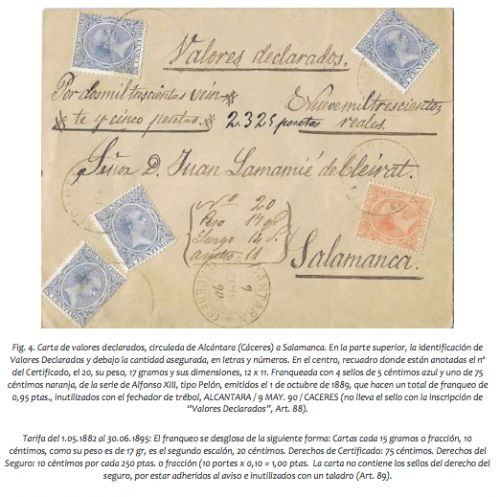 Valores declarados.
Por dos mil trescientas vein-
te y cinco pesetas.
2.325 pesetas
Nueve mil trescientos
reales.
Señor D. Juan Lamamié de Cleirat.
Nº 20
Peso 17 g
Largo 12
ancho 11
Salamanca.
9
90
Fig. 4. Carta de valores declarados, circulada de Alcántara (Cáceres) a Salamanca. En la parte superior, la identificación de
Valores Declarados y debajo la cantidad asegurada, en letras y números. En el centro, recuadro donde están anotadas el nº
del Certificado, el 20, su peso, 17 gramos y sus dimensiones, 12 x 11. Franqueada con 4 sellos de 5 céntimos azul y uno de 75
céntimos naranja, de la serie de Alfonso XIII, tipo Pelón, emitidos el 1 de octubre de 1889, que hacen un total de franqueo de
0,95 ptas., inutilizados con el fechador de trébol, ALCANTARA / 9 MAY. 90 / CACERES (no lleva el sello con la inscripción de
“Valores Declarados”, Art. 88).
Tarifa del 1.05.1882 al 30.06.1895: El franqueo se desglosa de la siguiente forma: Cartas cada 15 gramos o fracción, 10
céntimos, como su peso es de 17 gr, es el segundo escalón, 20 céntimos. Derechos de Certificado: 75 céntimos. Derechos del
Seguro: 10 céntimos por cada 250 ptas. o fracción (10 portes x 0,10 = 1,00 ptas. La carta no contiene los sellos del derecho del
seguro, por estar adheridos al aviso e inutilizados con un taladro (Art. 89).